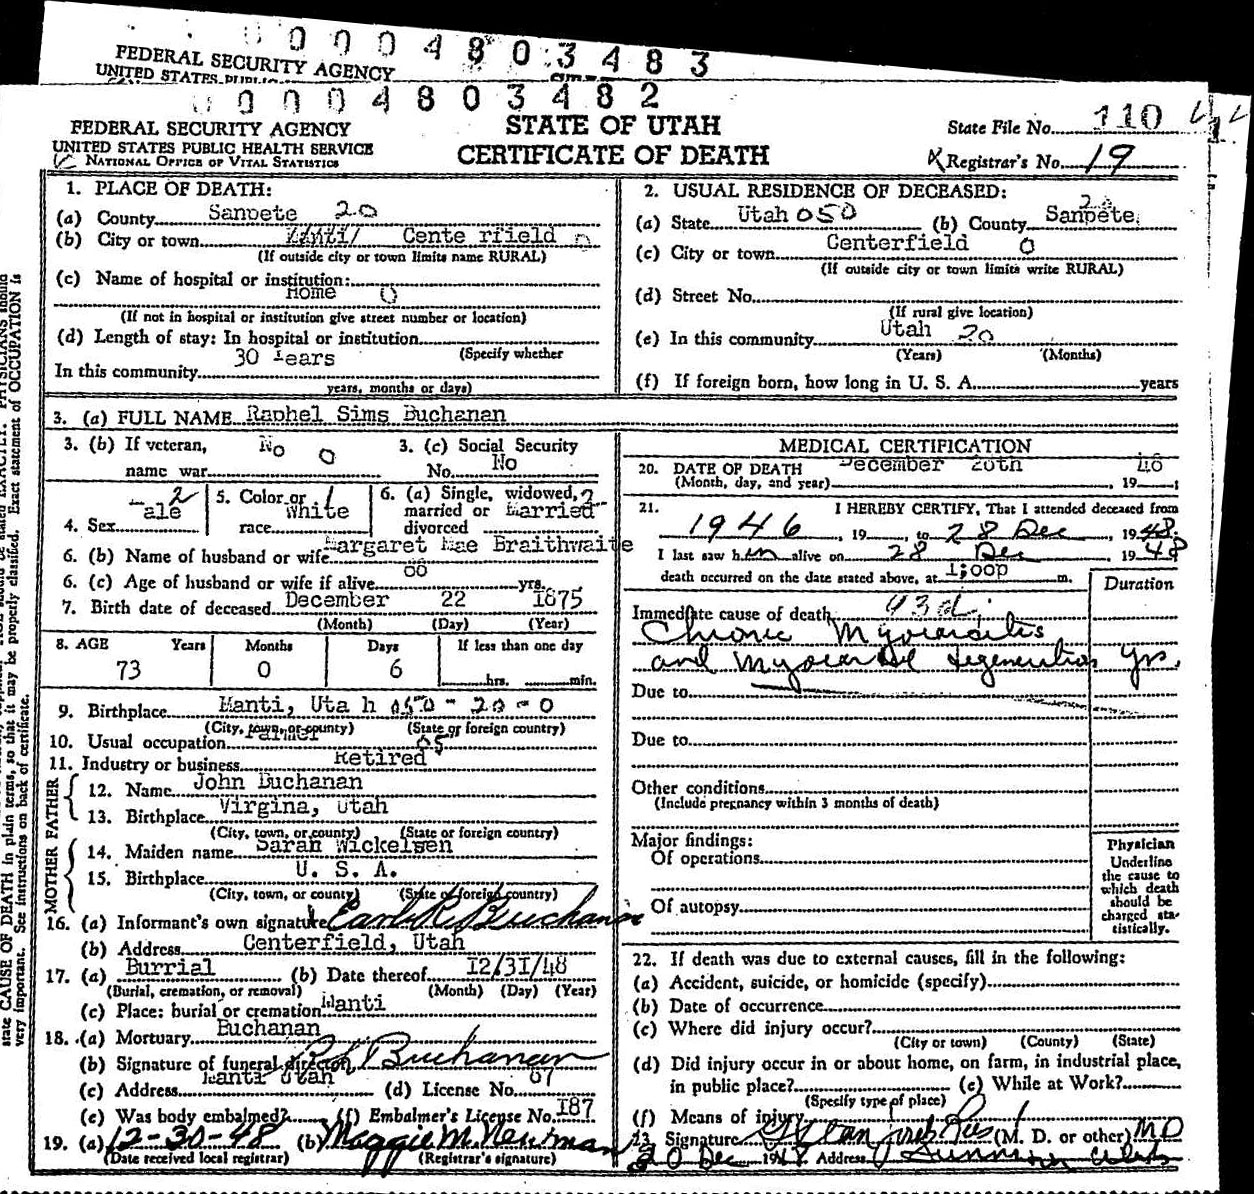 0 0 0 0 4 8 0 3 4 8 3
FEDERAL SECURITY AGENCY
UNITED STATES PUBLIC
0 0 0 0 4 8 0 3 4 8 2
FEDERAL SECURITY AGENCY
UNITED STATES PUBLIC HEALTH SERVICE
NATIONAL OFFICE OF VITAL STATISTICS
STATE OF UTAH
CERTIFICATE OF DEATH
State File No. 110
Registrar's No. 19
1. PLACE OF DEATH:
(a) County Sanpete 20
(b) City or town Manti Cente rfield
(If outside city or town limits name RURAL)
(c) Name of hospital or institution:
Home 0
(If not in hospital or institution give street number or location)
(d) Length of stay: In hospital or institution
30 Years (Specify whether
In this community
years, months or days)
2. USUAL RESIDENCE OF DECEASED:
(a) State Utah 050 (b) County Sanpete 20
(c) City or town Centerfield 0
(If outside city or town limits write RURAL)
(d) Street No.
(If rural give location)
(e) In this community Utah 20
(Years) (Months)
(f) If foreign born, how long in U. S. A. years
3. (a) FULL NAME Raphel Sims Buchanan
3. (b) If veteran, No 0
name war
3. (c) Social Security
No. No
4. Sex Male 2
5. Color or race White 1
6. (a) Single, widowed, married or divorced Married 2
6. (b) Name of husband or wife Margaret Mae Braithwaite
6. (c) Age of husband or wife if alive yrs.
7. Birth date of deceased December 22 1875
(Month) (Day) (Year)
8. AGE Years Months Days If less than one day
73 0 6 hrs. min.
9. Birthplace Manti, Uta h 050 - 20 - 0
(City, town, or county) (State or foreign country)
10. Usual occupation Farmer
11. Industry or business Retired 05
FATHER
12. Name John Buchanan
13. Birthplace Virgina, Utah
(City, town, or county) (State or foreign country)
MOTHER
14. Maiden name Sarah Wickelsen
15. Birthplace U. S. A.
(City, town, or county) (State or foreign country)
16. (a) Informant's own signature Earl R. Buchanan
(b) Address Centerfield, Utah
17. (a) Burrial (b) Date thereof 12/31/48
(Burial, cremation, or removal) (Month) (Day) (Year)
(c) Place: burial or cremation Manti
18. (a) Mortuary Buchanan
(b) Signature of funeral director Buchanan
(c) Address Manti Utah (d) License No. 67
(e) Was body embalmed? (f) Embalmer's License No. 187
19. (a) 12-30-48 (b) Maggie M. Newman
(Date received local registrar) (Registrar's signature)
MEDICAL CERTIFICATION
20. DATE OF DEATH December 28th 1948
(Month, day, and year) , 19 ;
21. I HEREBY CERTIFY, That I attended deceased from
1946 , 19 , to 28 Dec , 1948
I last saw him alive on 28 Dec 1948
death occurred on the date stated above, at 1;00p m.
Duration
Immediate cause of death 93d
Chronic Myocarditis
and myocardial degeneration yrs.
Due to
Due to
Other conditions
(Include pregnancy within 3 months of death)
Major findings:
Of operations
Of autopsy
Physician
Underline
the cause to
which death
should be
charged sta-
tistically.
22. If death was due to external causes, fill in the following:
(a) Accident, suicide, or homicide (specify)
(b) Date of occurrence
(c) Where did injury occur?
(City or town) (County) (State)
(d) Did injury occur in or about home, on farm, in industrial place,
in public place? (e) While at Work?
(Specify type of place)
(f) Means of injury
23. Signature (M. D. or other) MD
30 Dec 1948 Address Gunnison Utah
state CAUSE OF DEATH in plain terms, so that it may be properly classified. Exact statement of OCCUPATION is
very important. See instructions on back of certificate.